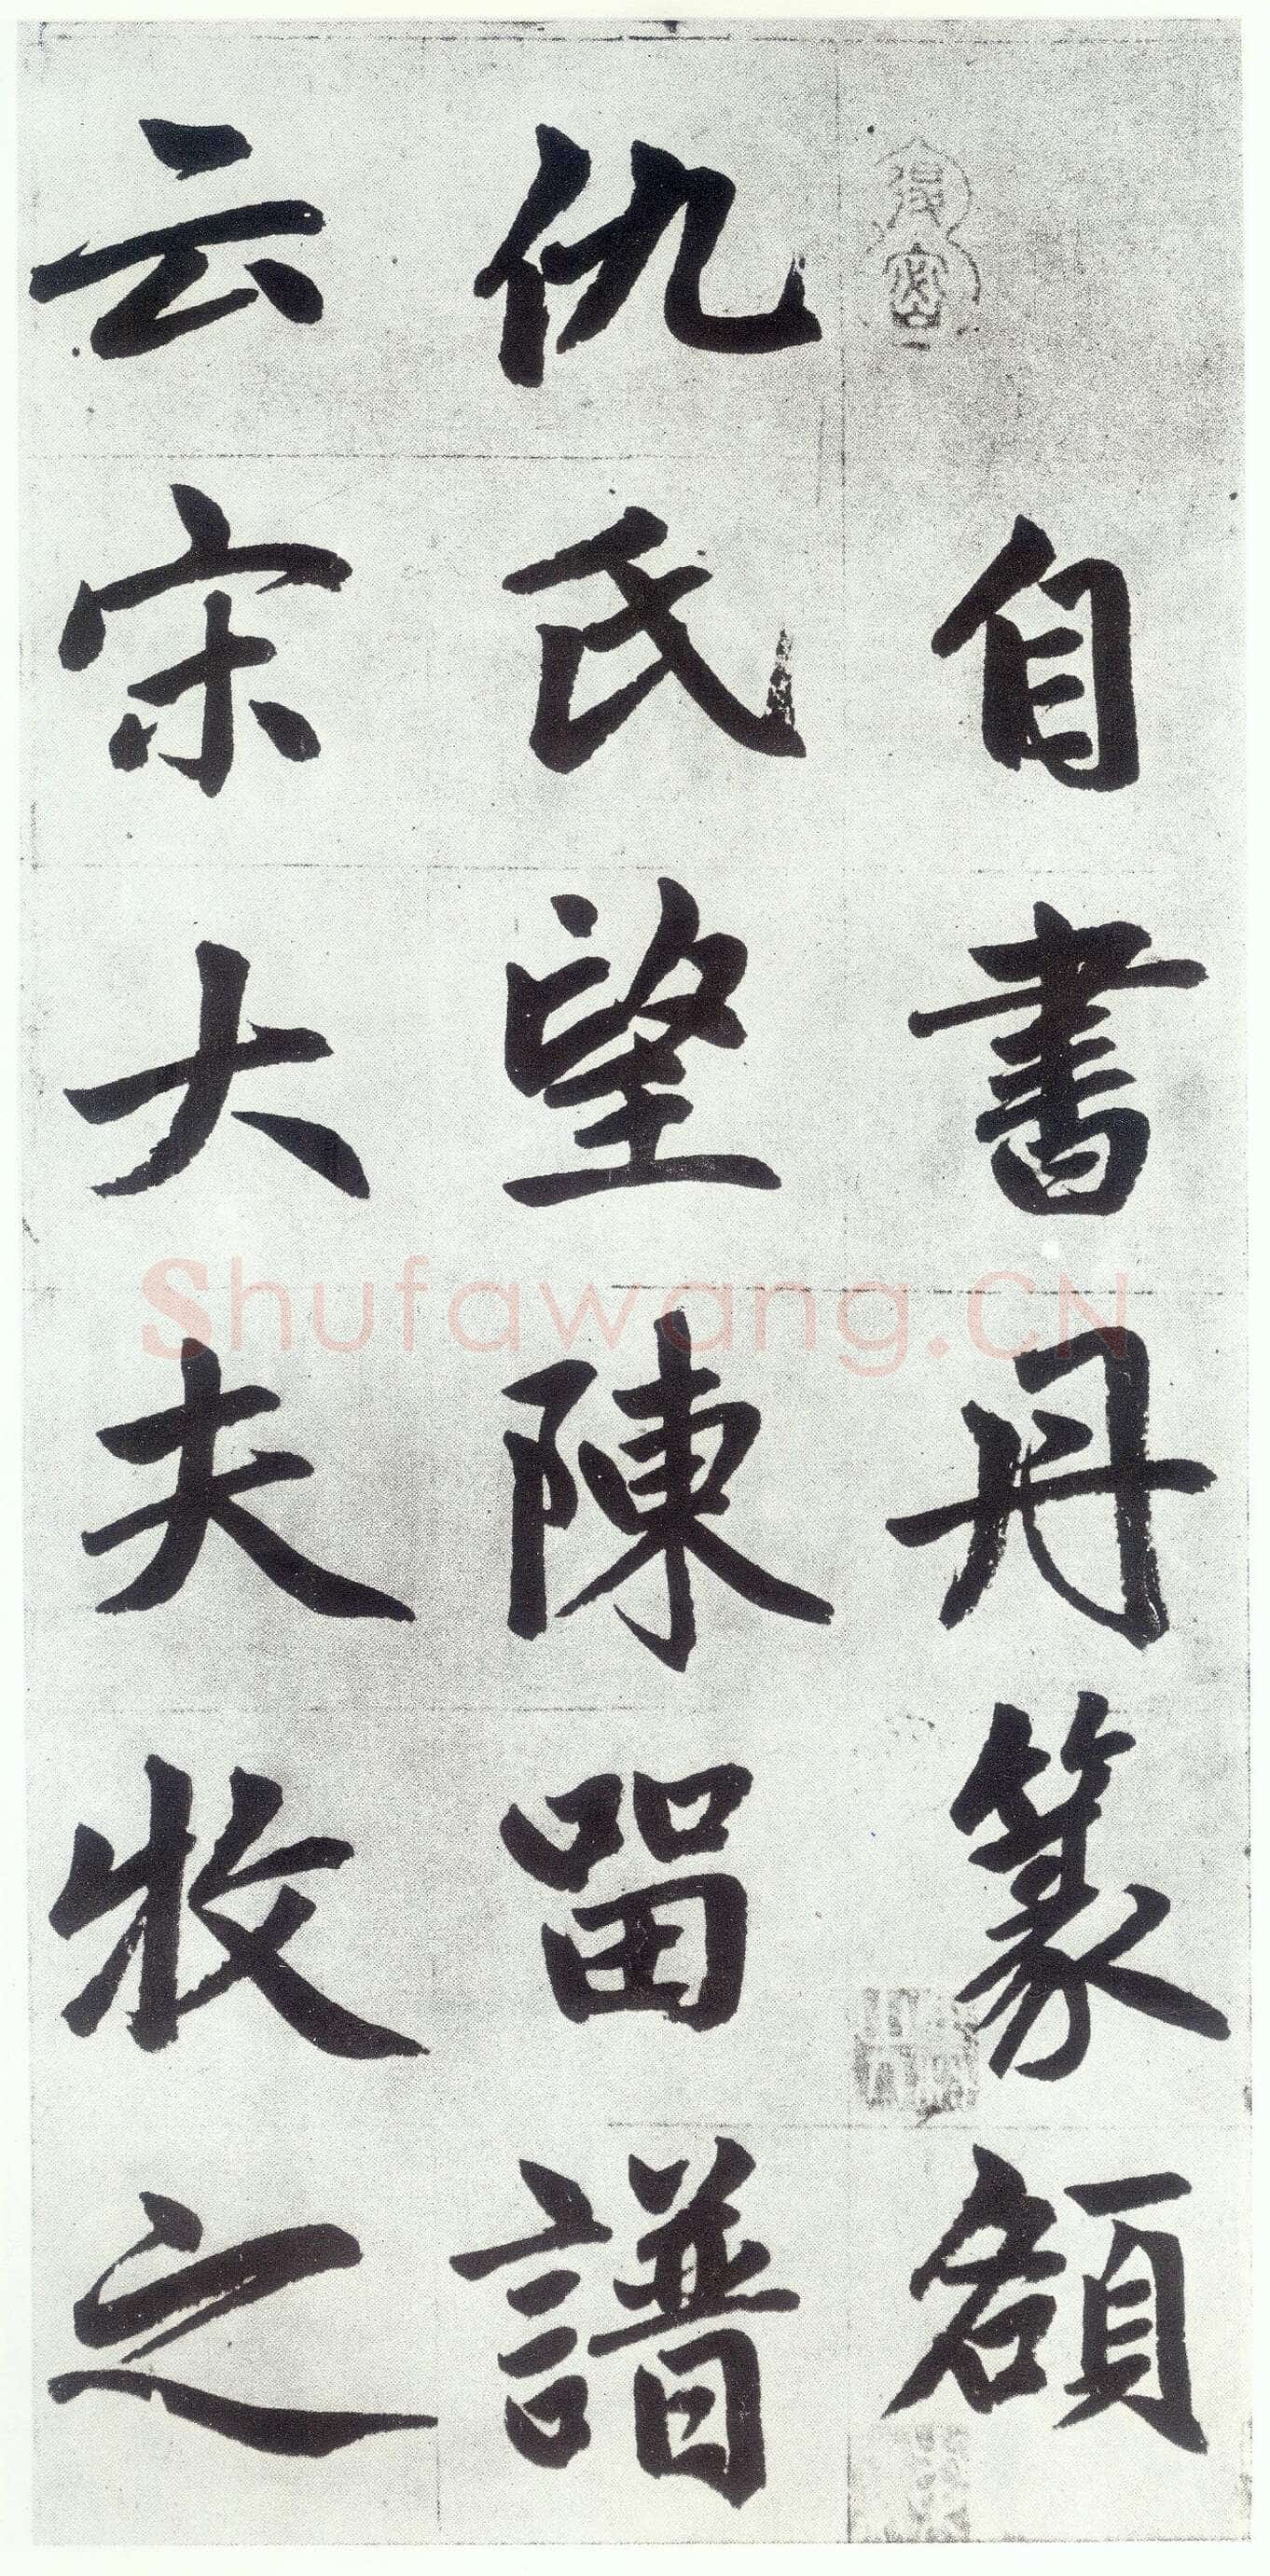 自書丹篆額
仇氏望陳留譜
云宋大夫牧之
Shufawang.CN